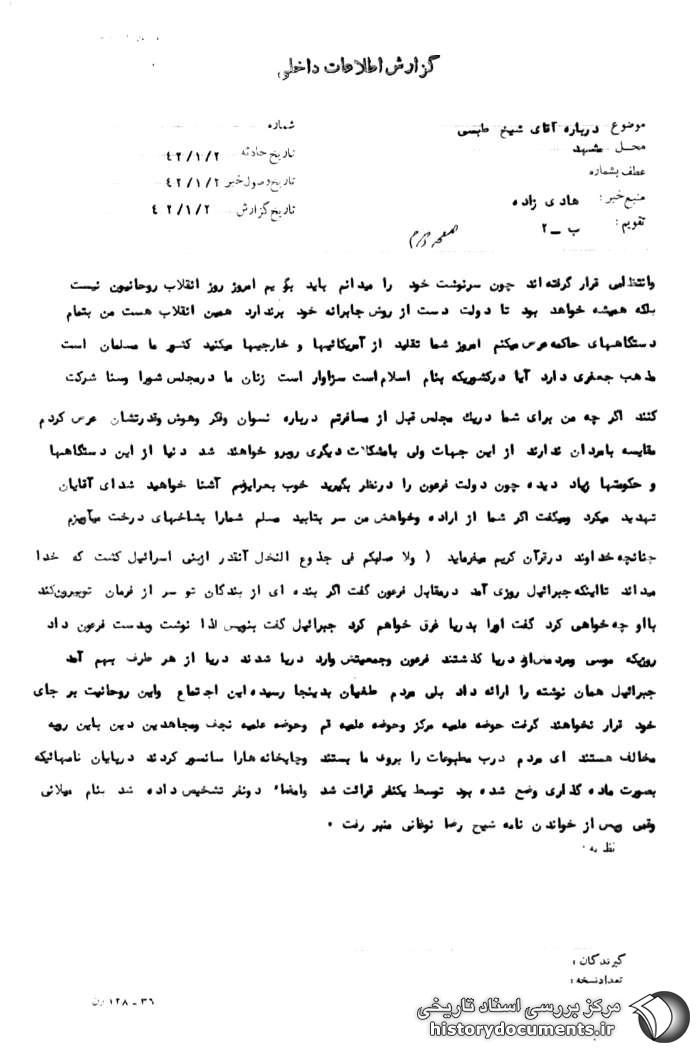 گزارش اطلاعات داخلی
موضوع درباره آقای شیخ طبسی
شماره
محل مشهد
تاریخ حادثه ٤٢/١/٢
عطف بشماره
تاریخ وصول خبر ٤٢/١/٢
منبع خبر: هادی زاده
تاریخ گزارش ٤٢/١/٢
تقویم: ب ــ ٢
صفحه دوم
وانتظامی قرار گرفته اند چون سرنوشت خود را میدانم باید بگویم امروز روز انقلاب روحانیون نیست
بلکه همیشه خواهد بود تا دولت دست از روش جابرانه خود برندارد همین انقلاب هست من بتمام
دستگاههای حاکمه عرض میکنم امروز شما تقلید از آمریکائیها و خارجیها میکنید کشور ما مسلمان است
مذهب جعفری دارد آیا درکشوریکه بنام اسلام است سزاوار است زنان ما درمجلس شورا وسنا شرکت
کنند اگر چه من برای شما دریک مجلس قبل از مسافرتم درباره نسوان وفکر وهوش وقدرتشان عرض کردم
مقایسه بامردان ندارند از این جهات ولی بامشکلات دیگری روبرو خواهند شد دنیا از این دستگاهها
و حکومتها زیاد دیده چون دولت فرعون را درنظر بگیرید خوب بعرایضم آشنا خواهید شد ای آقایان
تهدید میکرد ومیگفت اگر شما از اراده وخواهش من سر بتابید مسلم شمارا بشاخهای درخت میآویزم
چنانچه خداوند درقرآن کریم میفرماید ( ولا صلبکم فی جذوع النخل آنقدر ازبنی اسرائیل کشت که خدا
میداند تااینکه جبرائیل روزی آمد درمقابل فرعون گفت اگر بنده ای از بندگان تو سر از فرمان توبیرون کند
بااو چه خواهی کرد گفت اورا بدریا غرق خواهم کرد جبرائیل گفت بنویس لذا نوشت وبدست فرعون داد
روزیکه موسی ومردمش از دریا گذشتند فرعون وجمعیتش وارد دریا شدند دریا از هر طرف بهم آمد
جبرائیل همان نوشته را ارائه داد بلی مردم طغیان بدینجا رسیده این اجتماع واین روحانیت بر جای
خود قرار نخواهند گرفت حوضه علمیه مرکز وحوضه علمیه قم وحوضه علمیه نجف ومجاهدین دین باین رویه
مخالف هستند ای مردم درب مطبوعات را بروی ما بستند وچاپخانه هارا سانسور کردند درپایان نامه‌ایکه
بصورت ماده گذاری وضع شده بود توسط یکنفر قرائت شد وامضاء دونفر تشخیص داده شد بنام میلانی
وقمی وپس از خواندن نامه شیخ رضا نوغانی منبر رفت ٠
نظریه:
گیرندگان:
تعداد نسخه:
٣٦ ــ ١٢٨
مرکز بررسی اسناد تاریخی
historydocuments.ir